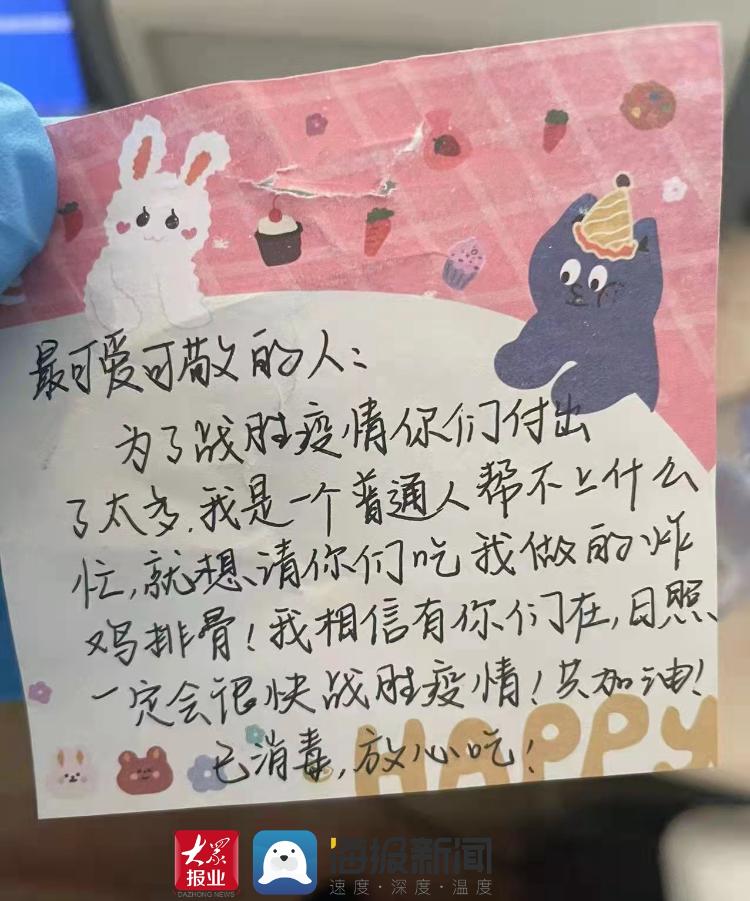 最可爱可敬的人：
为了战胜疫情你们付出
了太多.我是一个普通人帮不上什么
忙,就想请你们吃我做的炸
鸡排骨！我相信有你们在,日照
一定会很快战胜疫情！共加油！
已消毒,放心吃！
HAPPY
大众
报业
DAZHONG NEWS
海报新闻
速度·深度·温度